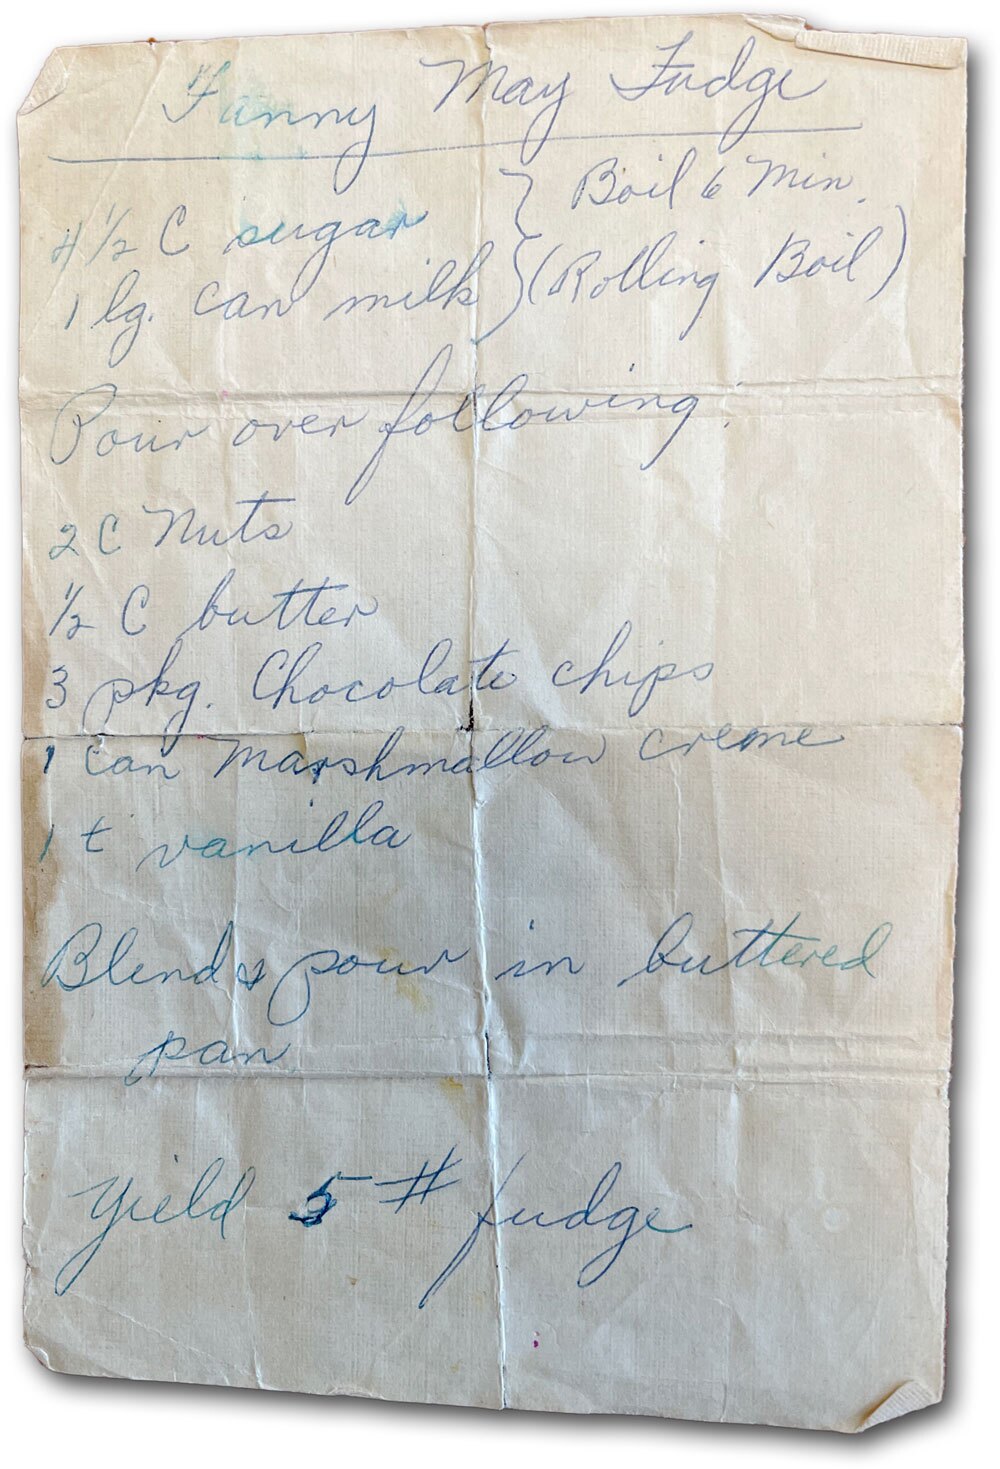 Fanny May Fudge
4 1/2 C sugar } Boil 6 Min.
1 lg. can milk } (Rolling Boil)
Pour over following:
2 C Nuts
1/2 C butter
3 pkg. Chocolate chips
1 can Marshmallow creme
1 t vanilla
Blend & pour in buttered
pan.
Yield 5 # fudge